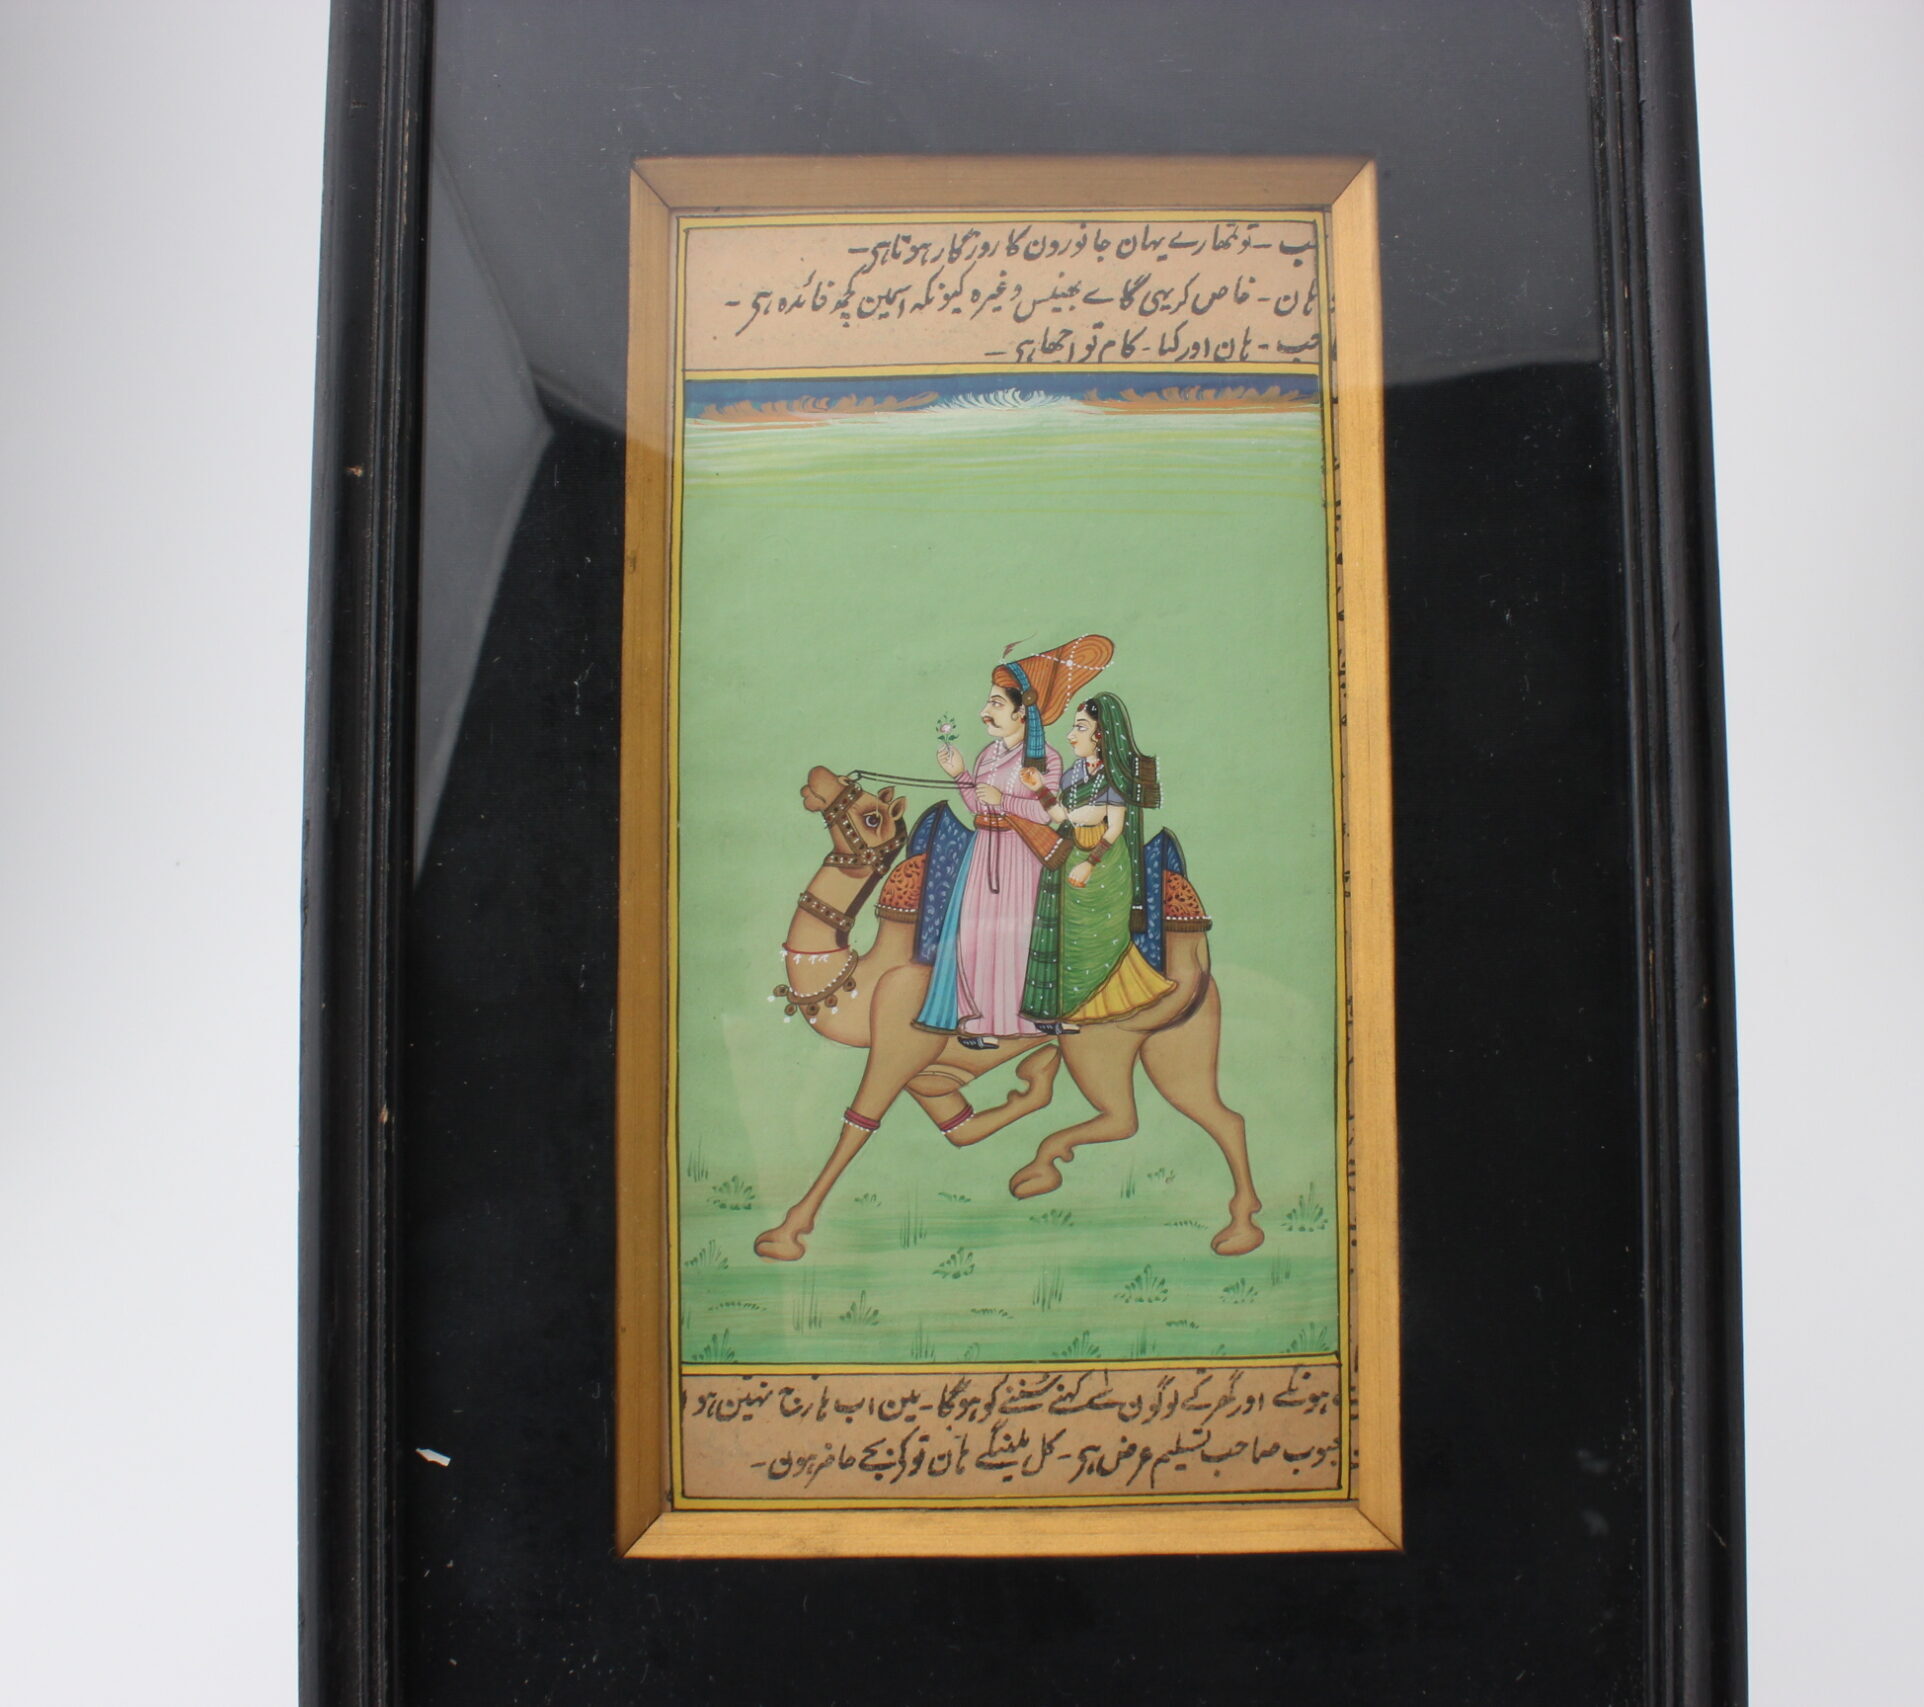 تو تمھارے یہان جانورون کا روزگار ہوتا ہی۔
ہان۔ خاص کر یہی گاے بھینس وغیرہ کیونکہ اسمین کچھ فائدہ ہی۔
ہان اور کیا۔ کام تو اچھا ہی۔
ہونگے اور گھر کے لوگون سے کہنے سننے کو ہوگا۔ مین اب نہین ہو
صاحب تسلیم عرض ہی۔ کل ملینگے ہان تو کَے بجے حاضر ہون۔